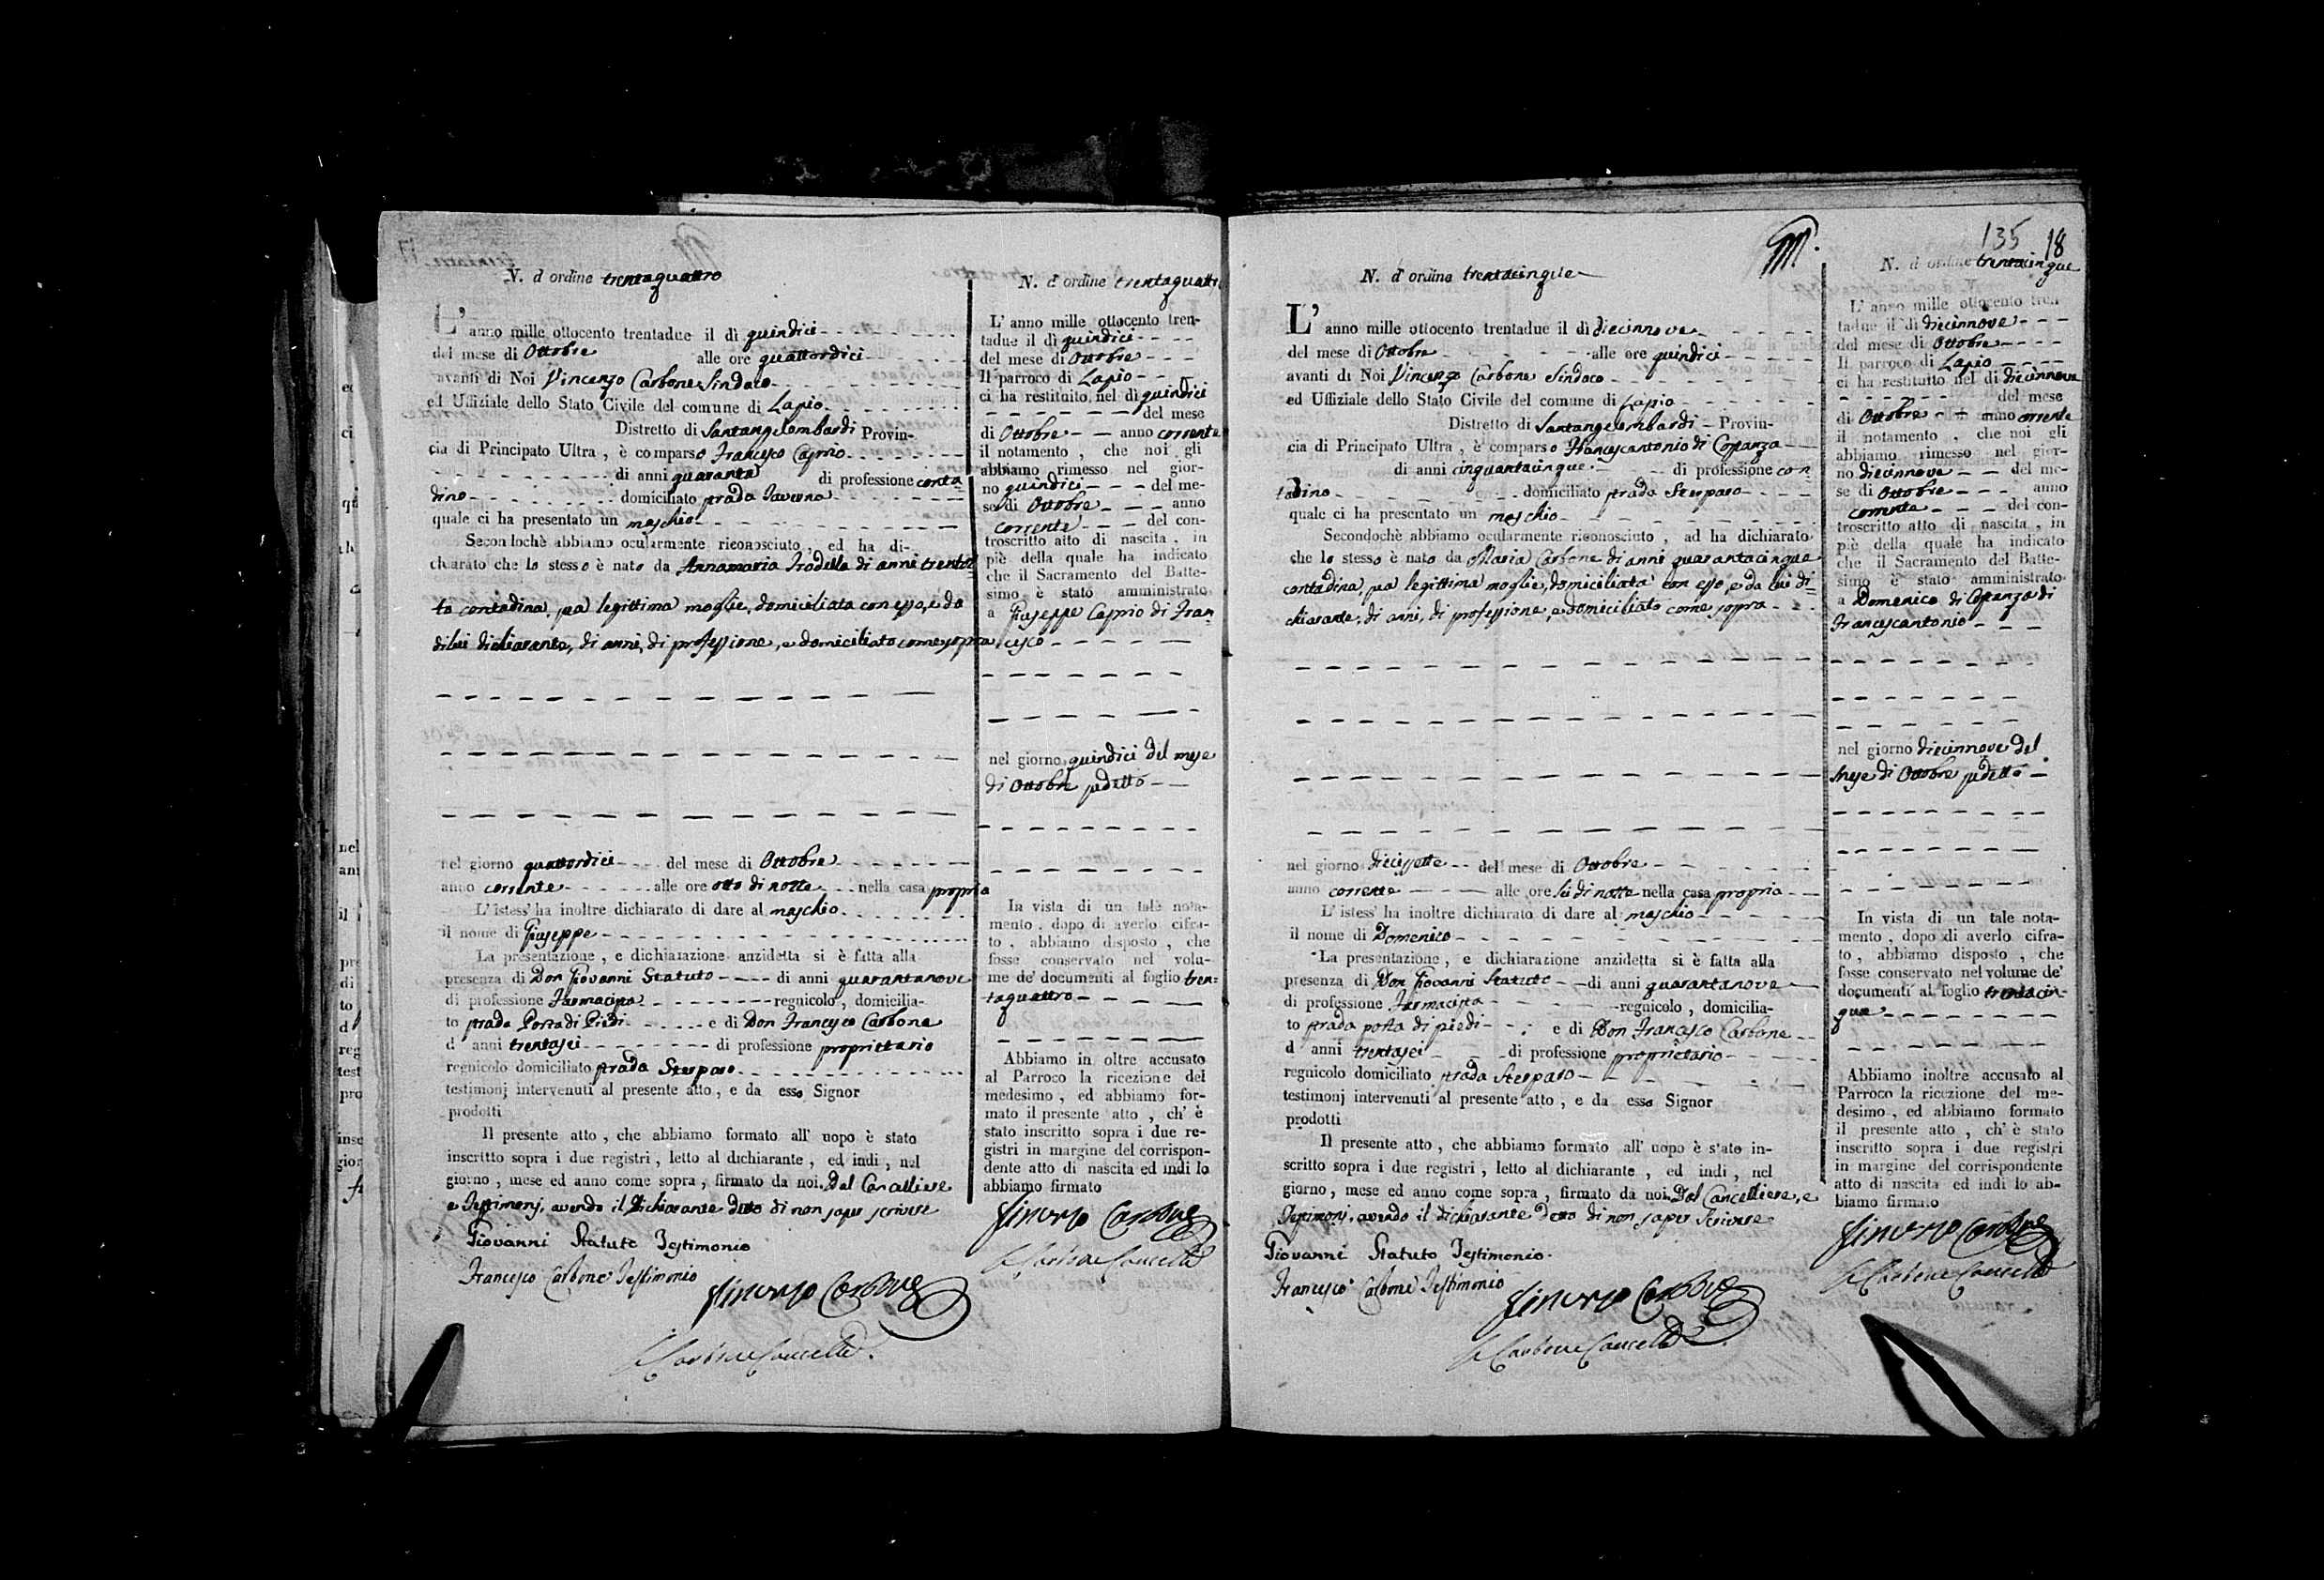 V. d'ordine trentaquattro
L'anno mille ottocento trentadue il dì quindici
del mese di Ottobre alle ore quattordici
avanti di Noi Vincenzo Carbone Sindaco
ed Uffiziale dello Stato Civile del comune di Lapio
Distretto di Santangelombardi Provin-
cia di Principato Ultra, è comparso Francesco Caprio
di anni quaranta di professione conta-
dino domiciliato strada Taverna
quale ci ha presentato un maschio
Secondochè abbiamo ocularmente riconosciuto, ed ha di-
chiarato che lo stesso è nato da Annamaria
ta contadina, sua legittima moglie, domiciliata con esso, e da
di lui dichiarante, di anni, di professione, e domiciliato come sopra
nel giorno quattordici del mese di Ottobre
anno corrente alle ore otto di notte nella casa propria
L'istess' ha inoltre dichiarato di dare al maschio
il nome di Giuseppe
La presentazione, e dichiarazione anzidetta si è fatta alla
presenza di Don Giovanni Statuto di anni quarantanove
di professione Farmacista regnicolo, domicilia-
to strada Porta di Piedi e di Don Francesco Carbone
d anni trentasei di professione proprietario
regnicolo domiciliato strada Sterparo
testimonj intervenuti al presente atto, e da esso Signor
prodotti
Il presente atto, che abbiamo formato all' uopo è stato
inscritto sopra i due registri, letto al dichiarante, ed indi, nel
giorno, mese ed anno come sopra, firmato da noi. Dal Cancelliere
e Testimonj, avendo il Dichiarante detto di non saper scrivere
Giovanni Statuto Testimonio
Francesco Carbone Testimonio
Vincenzo Carbone
Carbone Cancellie
N. d'ordine trentaquattro
L'anno mille ottocento tren-
tadue il dì quindici
del mese di Ottobre
Il parroco di Lapio
ci ha restituito nel dì quindici
del mese
di Ottobre anno corrente
il notamento, che noi gli
abbiamo rimesso nel gior-
no quindici del me-
se di Ottobre anno
corrente del con-
troscritto atto di nascita, in
piè della quale ha indicato
che il Sacramento del Batte-
simo è stato amministrato
a Giuseppe Caprio di Fran-
cesco
nel giorno quindici del mese
di Ottobre sudetto
In vista di un tale nota-
mento, dopo di averlo cifra-
to, abbiamo disposto, che
fosse conservato nel volu-
me de' documenti al foglio tren-
taquattro
Abbiamo in oltre accusato
al Parroco la ricezione del
medesimo, ed abbiamo for-
mato il presente atto, ch' è
stato inscritto sopra i due re-
gistri in margine del corrispon-
dente atto di nascita ed indi lo
abbiamo firmato
Vincenzo Carbone
Carbone Cancellie
135 18
N. d'ordine trentacinque
L'anno mille ottocento trentadue il dì diecinnove
del mese di Ottobre alle ore quindici
avanti di Noi Vincenzo Carbone Sindaco
ed Uffiziale dello Stato Civile del comune di Lapio
Distretto di Santangelombardi Provin-
cia di Principato Ultra, è comparso Francescantonio di Costanza
di anni cinquantacinque di professione con
tadino domiciliato strada Sterparo
quale ci ha presentato un maschio
Secondochè abbiamo ocularmente riconosciuto, ad ha dichiarato
che lo stesso è nato da Maria Carbone di anni quarantacinque
contadina, sua legittima moglie, domiciliata con esso, e da lui di-
chiarante, di anni, di professione, e domiciliato come sopra
nel giorno dicissette del mese di Ottobre
anno corrente alle ore sei di notte nella casa propria
L'istess' ha inoltre dichiarato di dare al maschio
il nome di Domenico
La presentazione, e dichiarazione anzidetta si è fatta alla
presenza di Don Giovanni Statuto di anni quarantanove
di professione Farmacista regnicolo, domicilia-
to strada porta di piedi e di Don Francesco Carbone
d anni trentasei di professione proprietario
regnicolo domiciliato strada Sterparo
testimonj intervenuti al presente atto, e da esso Signor
prodotti
Il presente atto, che abbiamo formato all' uopo è stato in-
scritto sopra i due registri, letto al dichiarante, ed indi, nel
giorno, mese ed anno come sopra, firmato da noi. Dal Cancelliere, e
Testimonj, avendo il dichiarante detto di non saper scrivere
Giovanni Statuto Testimonio
Francesco Carbone Testimonio
Vincenzo Carbone
Carbone Cancellie
N. d'ordine trentacinque
L'anno mille ottocento tren
tadue il dì diecinnove
del mese di Ottobre
Il parroco di Lapio
ci ha restituito nel dì diecinnove
del mese
di Ottobre anno corrente
il notamento, che noi gli
abbiamo rimesso nel gior-
no diecinnove del me-
se di Ottobre anno
corrente del con-
troscritto atto di nascita, in
piè della quale ha indicato
che il Sacramento del Batte-
simo è stato amministrato
a Domenico di Costanza di
Francescantonio
nel giorno diecinnove del
mese di Ottobre sudetto
In vista di un tale nota-
mento, dopo di averlo cifra-
to, abbiamo disposto, che
fosse conservato nel volume de'
documenti al foglio trentacin-
que
Abbiamo inoltre accusato al
Parroco la ricezione del me-
desimo, ed abbiamo formato
il presente atto, ch' è stato
inscritto sopra i due registri
in margine del corrispondente
atto di nascita ed indi lo ab-
biamo firmato
Vincenzo Carbone
Carbone Cancellie